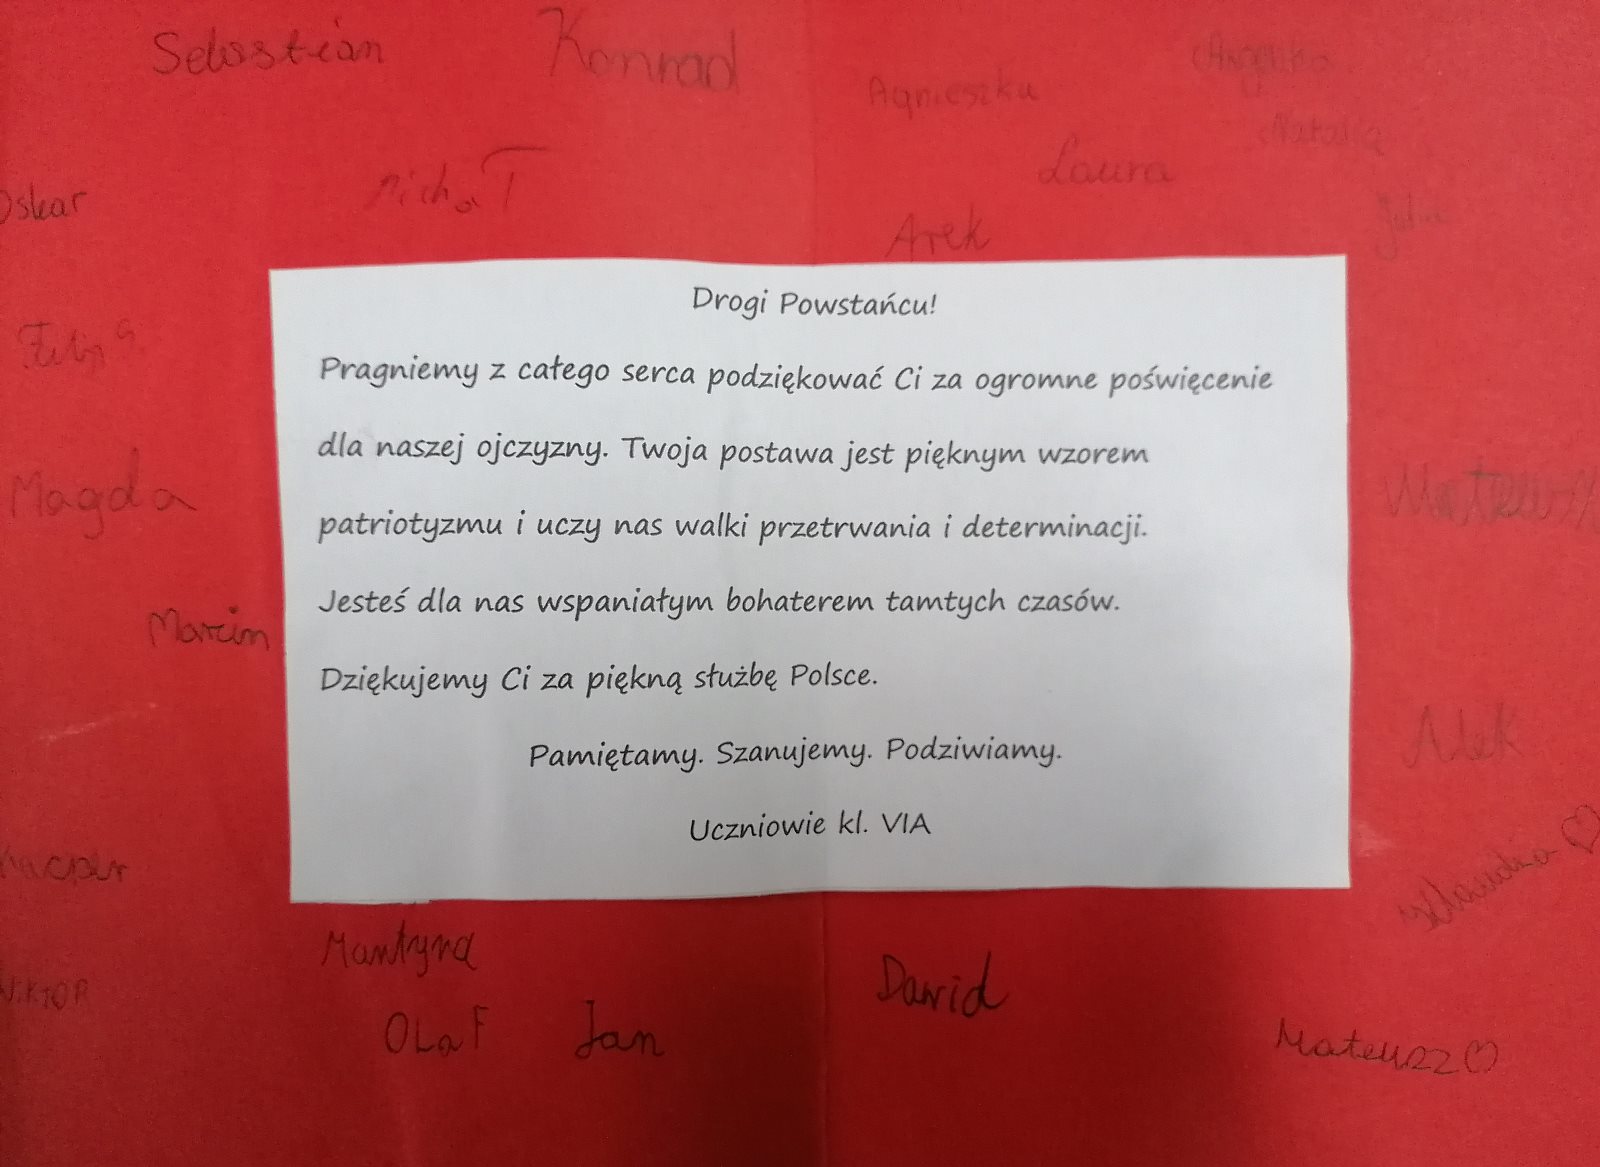 Sebastian Konrad
Agnieszka
Natalia
Laura
Oskar
Michał
Arek
Drogi Powstańcu!
Pragniemy z całego serca podziękować Ci za ogromne poświęcenie
dla naszej ojczyzny. Twoja postawa jest pięknym wzorem
patriotyzmu i uczy nas walki przetrwania i determinacji.
Jesteś dla nas wspaniałym bohaterem tamtych czasów.
Dziękujemy Ci za piękną służbę Polsce.
Pamiętamy. Szanujemy. Podziwiamy.
Uczniowie kl. VIA
Magda
Mateusz
Marcin
Alek
Kacper
Martyna
Wiktor
Dawid
Olaf Jan
Mateusz